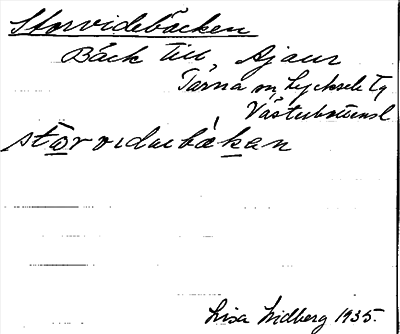 Storvidebäcken
Bäck till Ajaur
Tärna sn, Lycksele Tg
Västerbottensl
storvidaebäkan
Lisa Lidberg 1935.